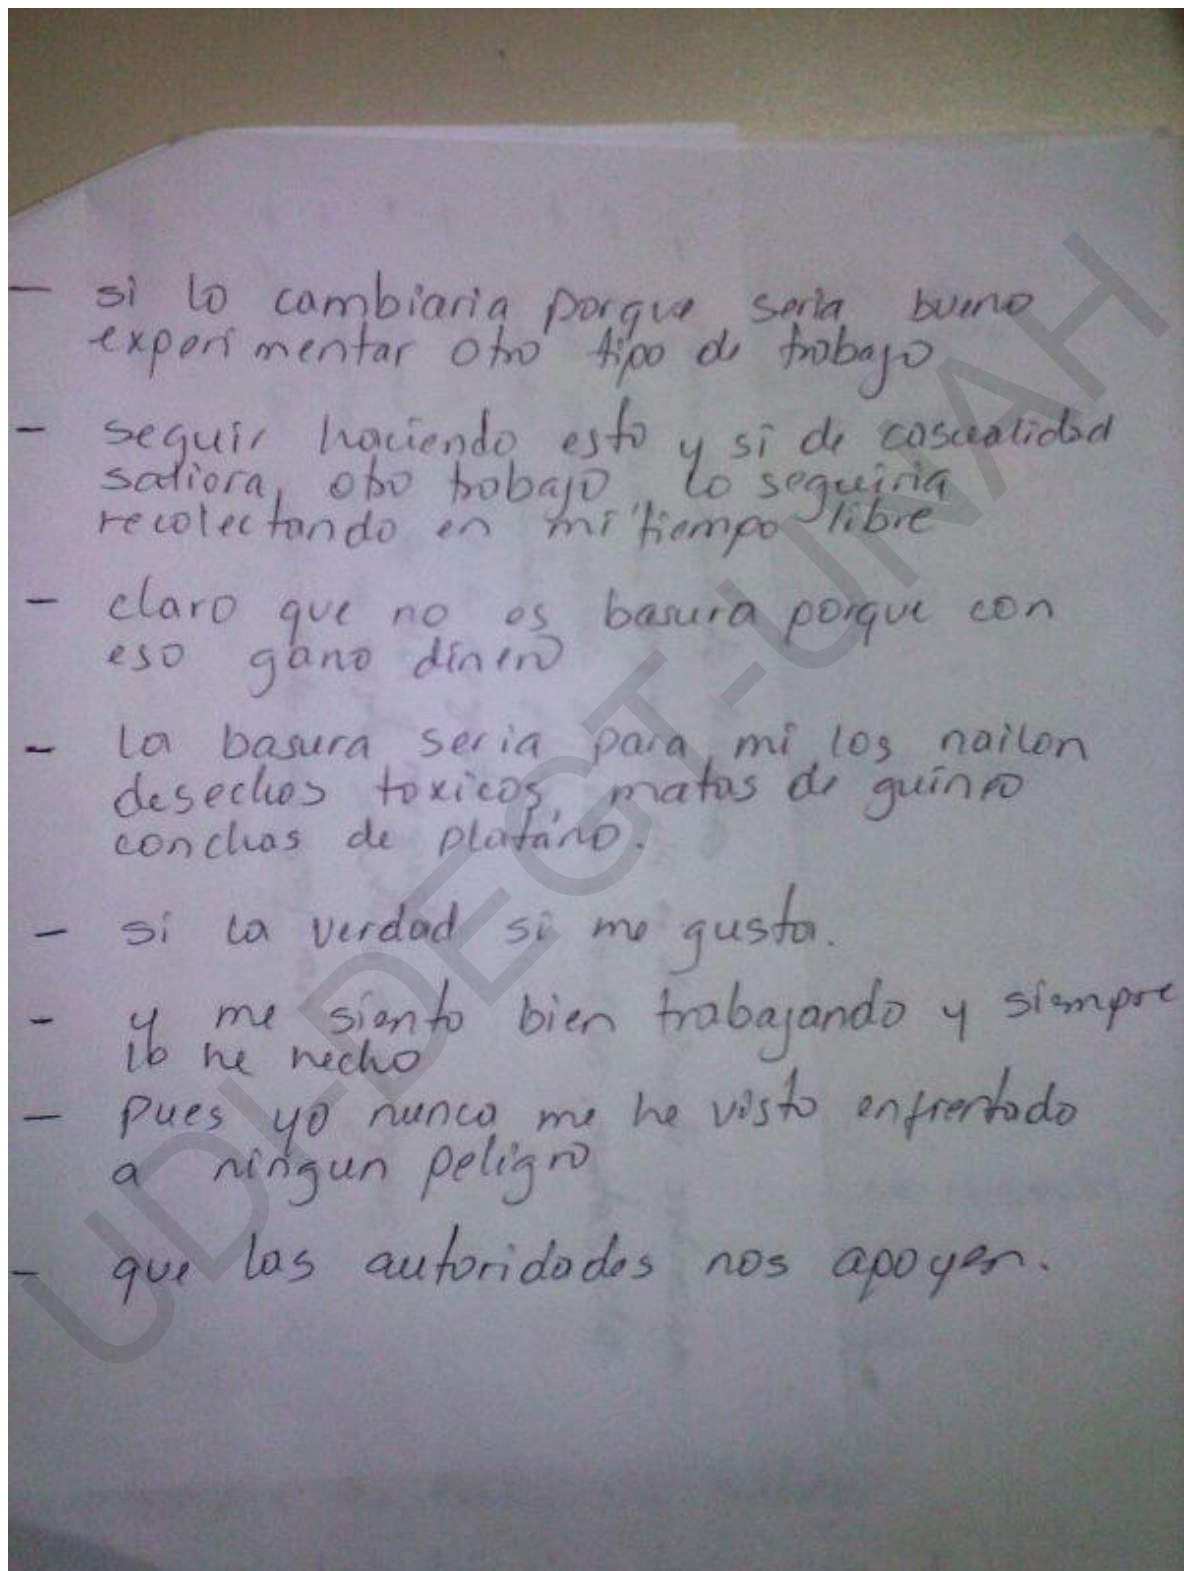 - si lo cambiaria porque seria bueno
experimentar otro tipo de trabajo
- seguir haciendo esto y si de casualidad
saliera, otro trabajo, lo seguiria
recolectando en mi tiempo libre
- claro que no es basura porque con
eso gano dinero
- la basura seria para mi los nailon
desechos toxicos, matas de guineo
conchas de platano.
- si la verdad si me gusta.
- y me siento bien trabajando y siempre
lo he hecho
- pues yo nunca me he visto enfrentado
a ningun peligro
- que las autoridades nos apoyen.
UDI-DEGT-UNAH